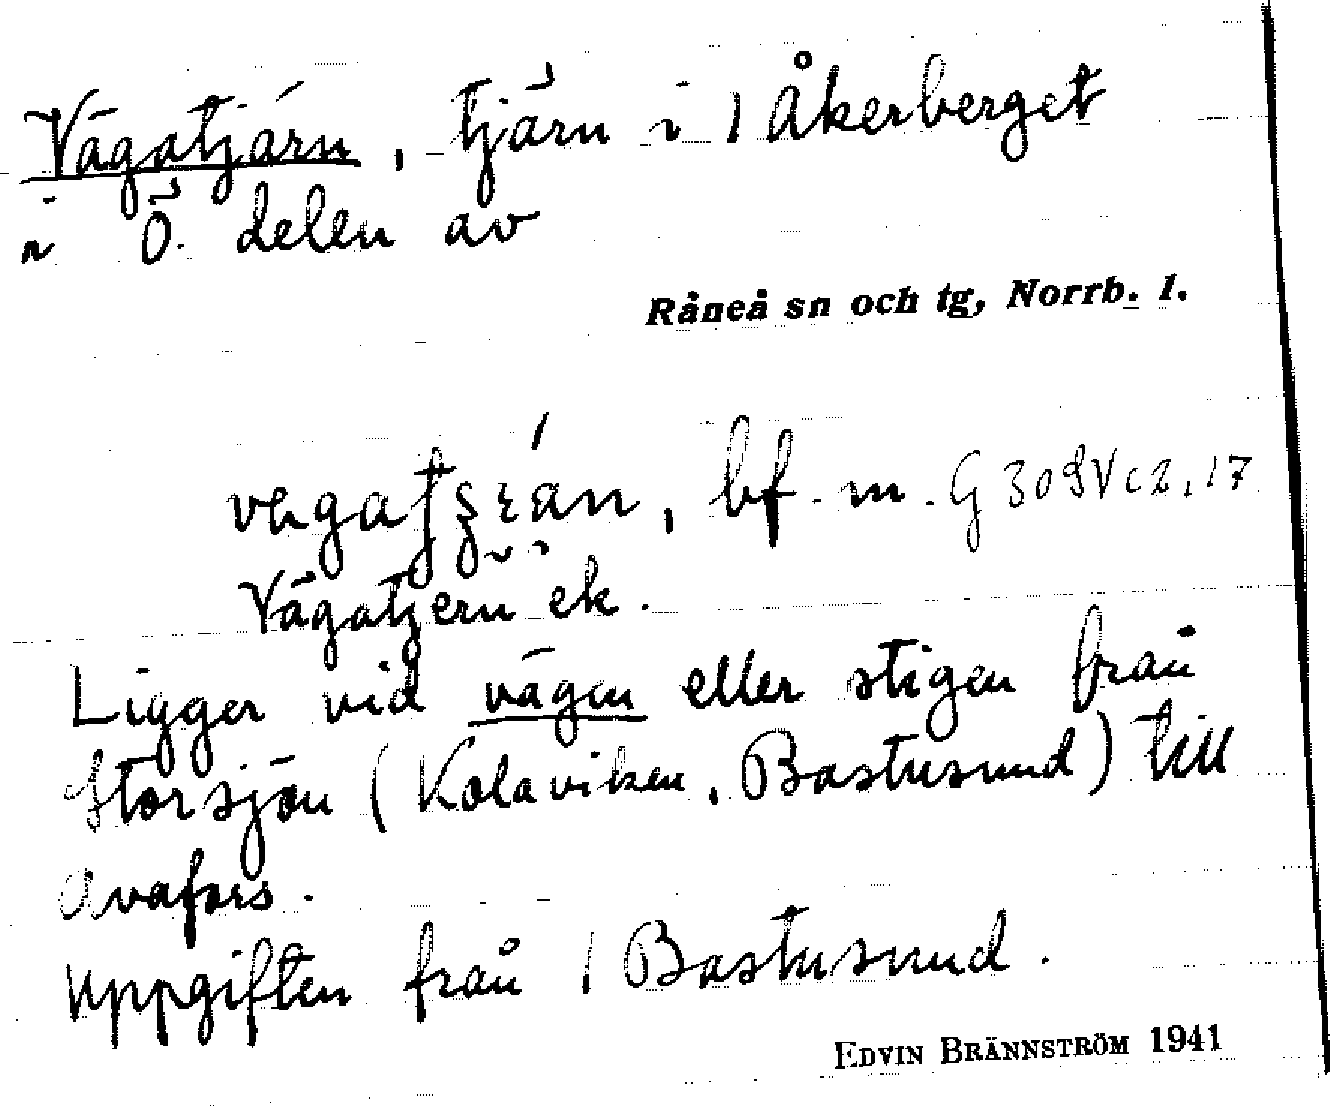 Vägatjärn, tjärn i 1 Åkerberget
i Ö. delen av
Råneå sn och tg, Norrb. l.
bf. m. G 309 V c 2, 17
Vägatjern ek.
Ligger vid vägen eller stigen från
Storsjön (Kolaviken, Bastusund) till
Avafors.
Uppgiften från 1 Bastusund.
EDVIN BRÄNNSTRÖM 1941